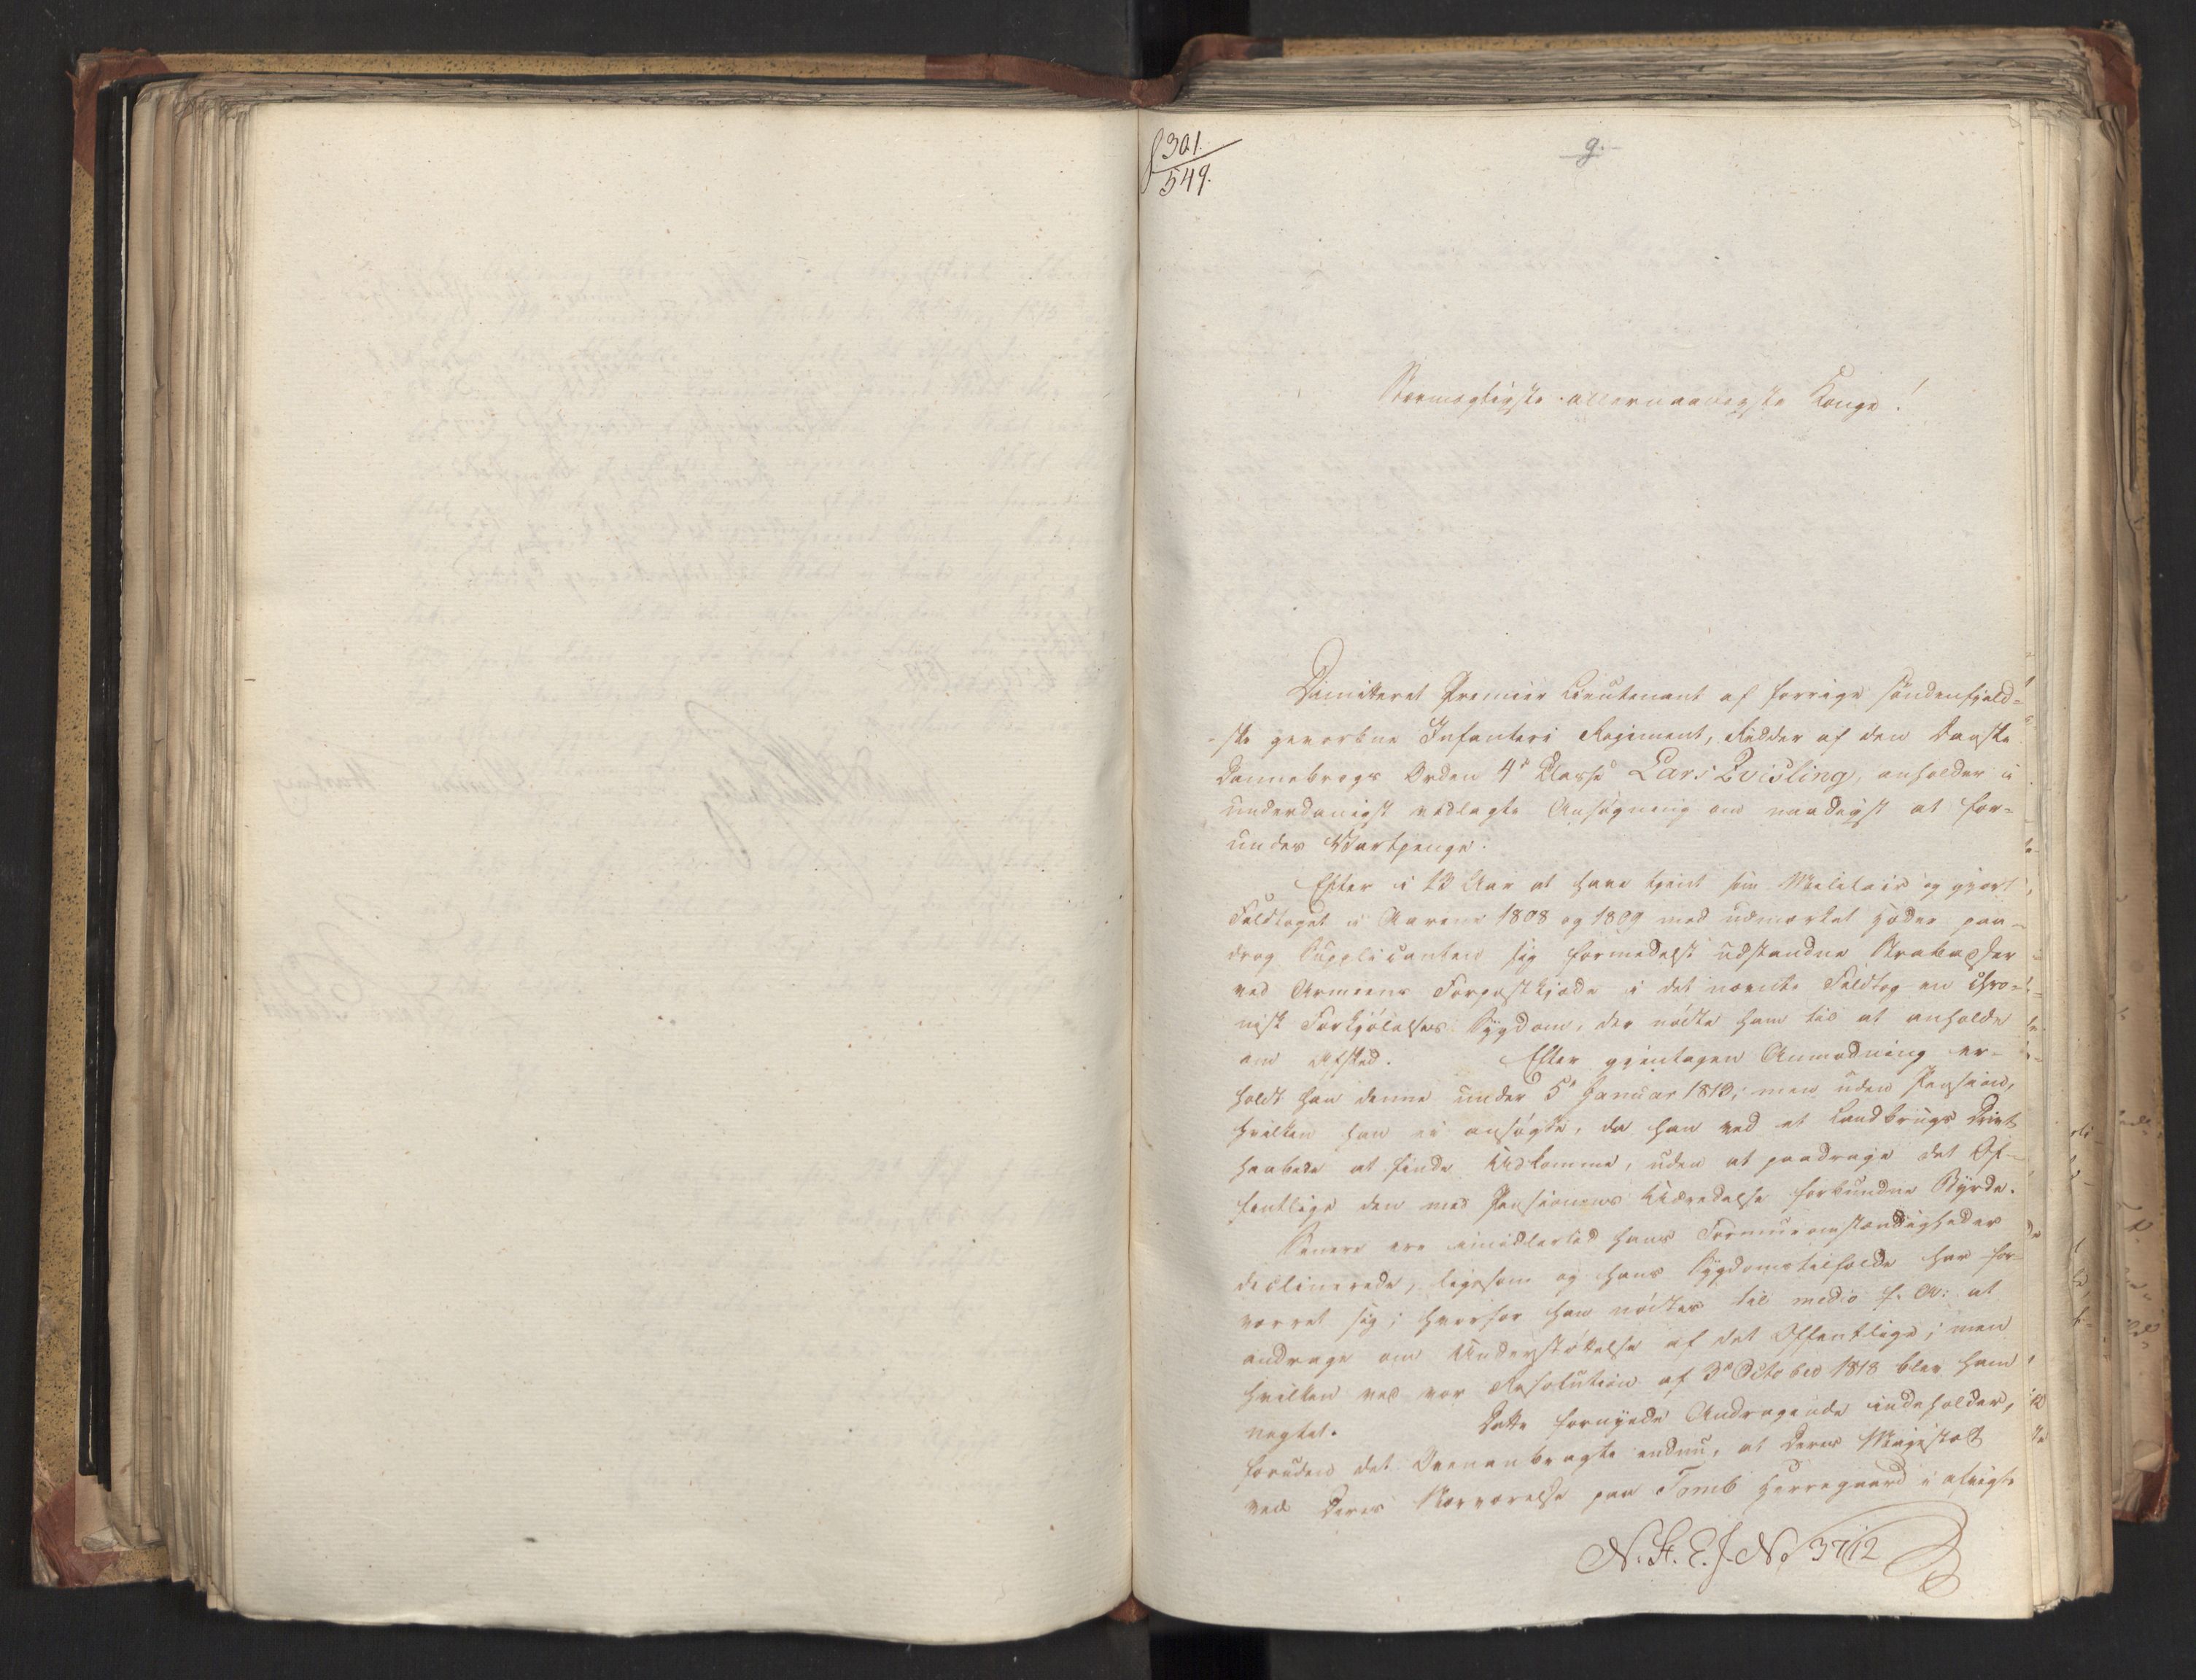 301.
549.
9.
Stormægtigste allernaadigste Konge!
Dimitteret Premier Lieutenant af forrige søndenfjeld-
ske gevorbne Infanteri Regiment, Ridder af den Danske
Dannebrogs Orden 4de Klasse Lars Qvisling, anholder i
underdanigst vedlagte Ansøgning om naadigst at for-
undes Vartpenge.
Efter i 13 Aar at have tjent som Militair og gjort
Feldtoget i Aarene 1808 og 1809 med udmærket Hæder paa-
drog Supplicanten sig formedelst udstandne Strabadser
ved Armeens Forpostkjæde i det nævnte Feldtog en chro-
nisk Forkjølelses Sygdom, der nødte ham til at anholde
om Afsked. Efter gjentagen Anmodning er-
holdt han denne under 5te Januar 1813; men uden Pension,
hvilken han ei ansøgte, da han ved et Landbrugs Drivt
haabede at finde Udkomme, uden at paadrage det Of-
fentlige den med Pensionens Udredelse forbundne Byrde.
Senere ere imidlertid hans Formueomstændigheder
declinerede, ligesom og hans Sygdomstilfælde har for-
værret sig; hvorfor han nødtes til medio f. A: at
andrage om Understøttelse af det Offentlige; men
hvilken ved vor Resolution af 3de October 1818 blev ham
nægtet. Dette fornyede Andragende indeholder,
foruden det Ovenanbragte endnu, at Deres Majestæt
ved Deres Nærværelse paa Tomb Herregaard i afvigte
N. St. E. J. No 37/12